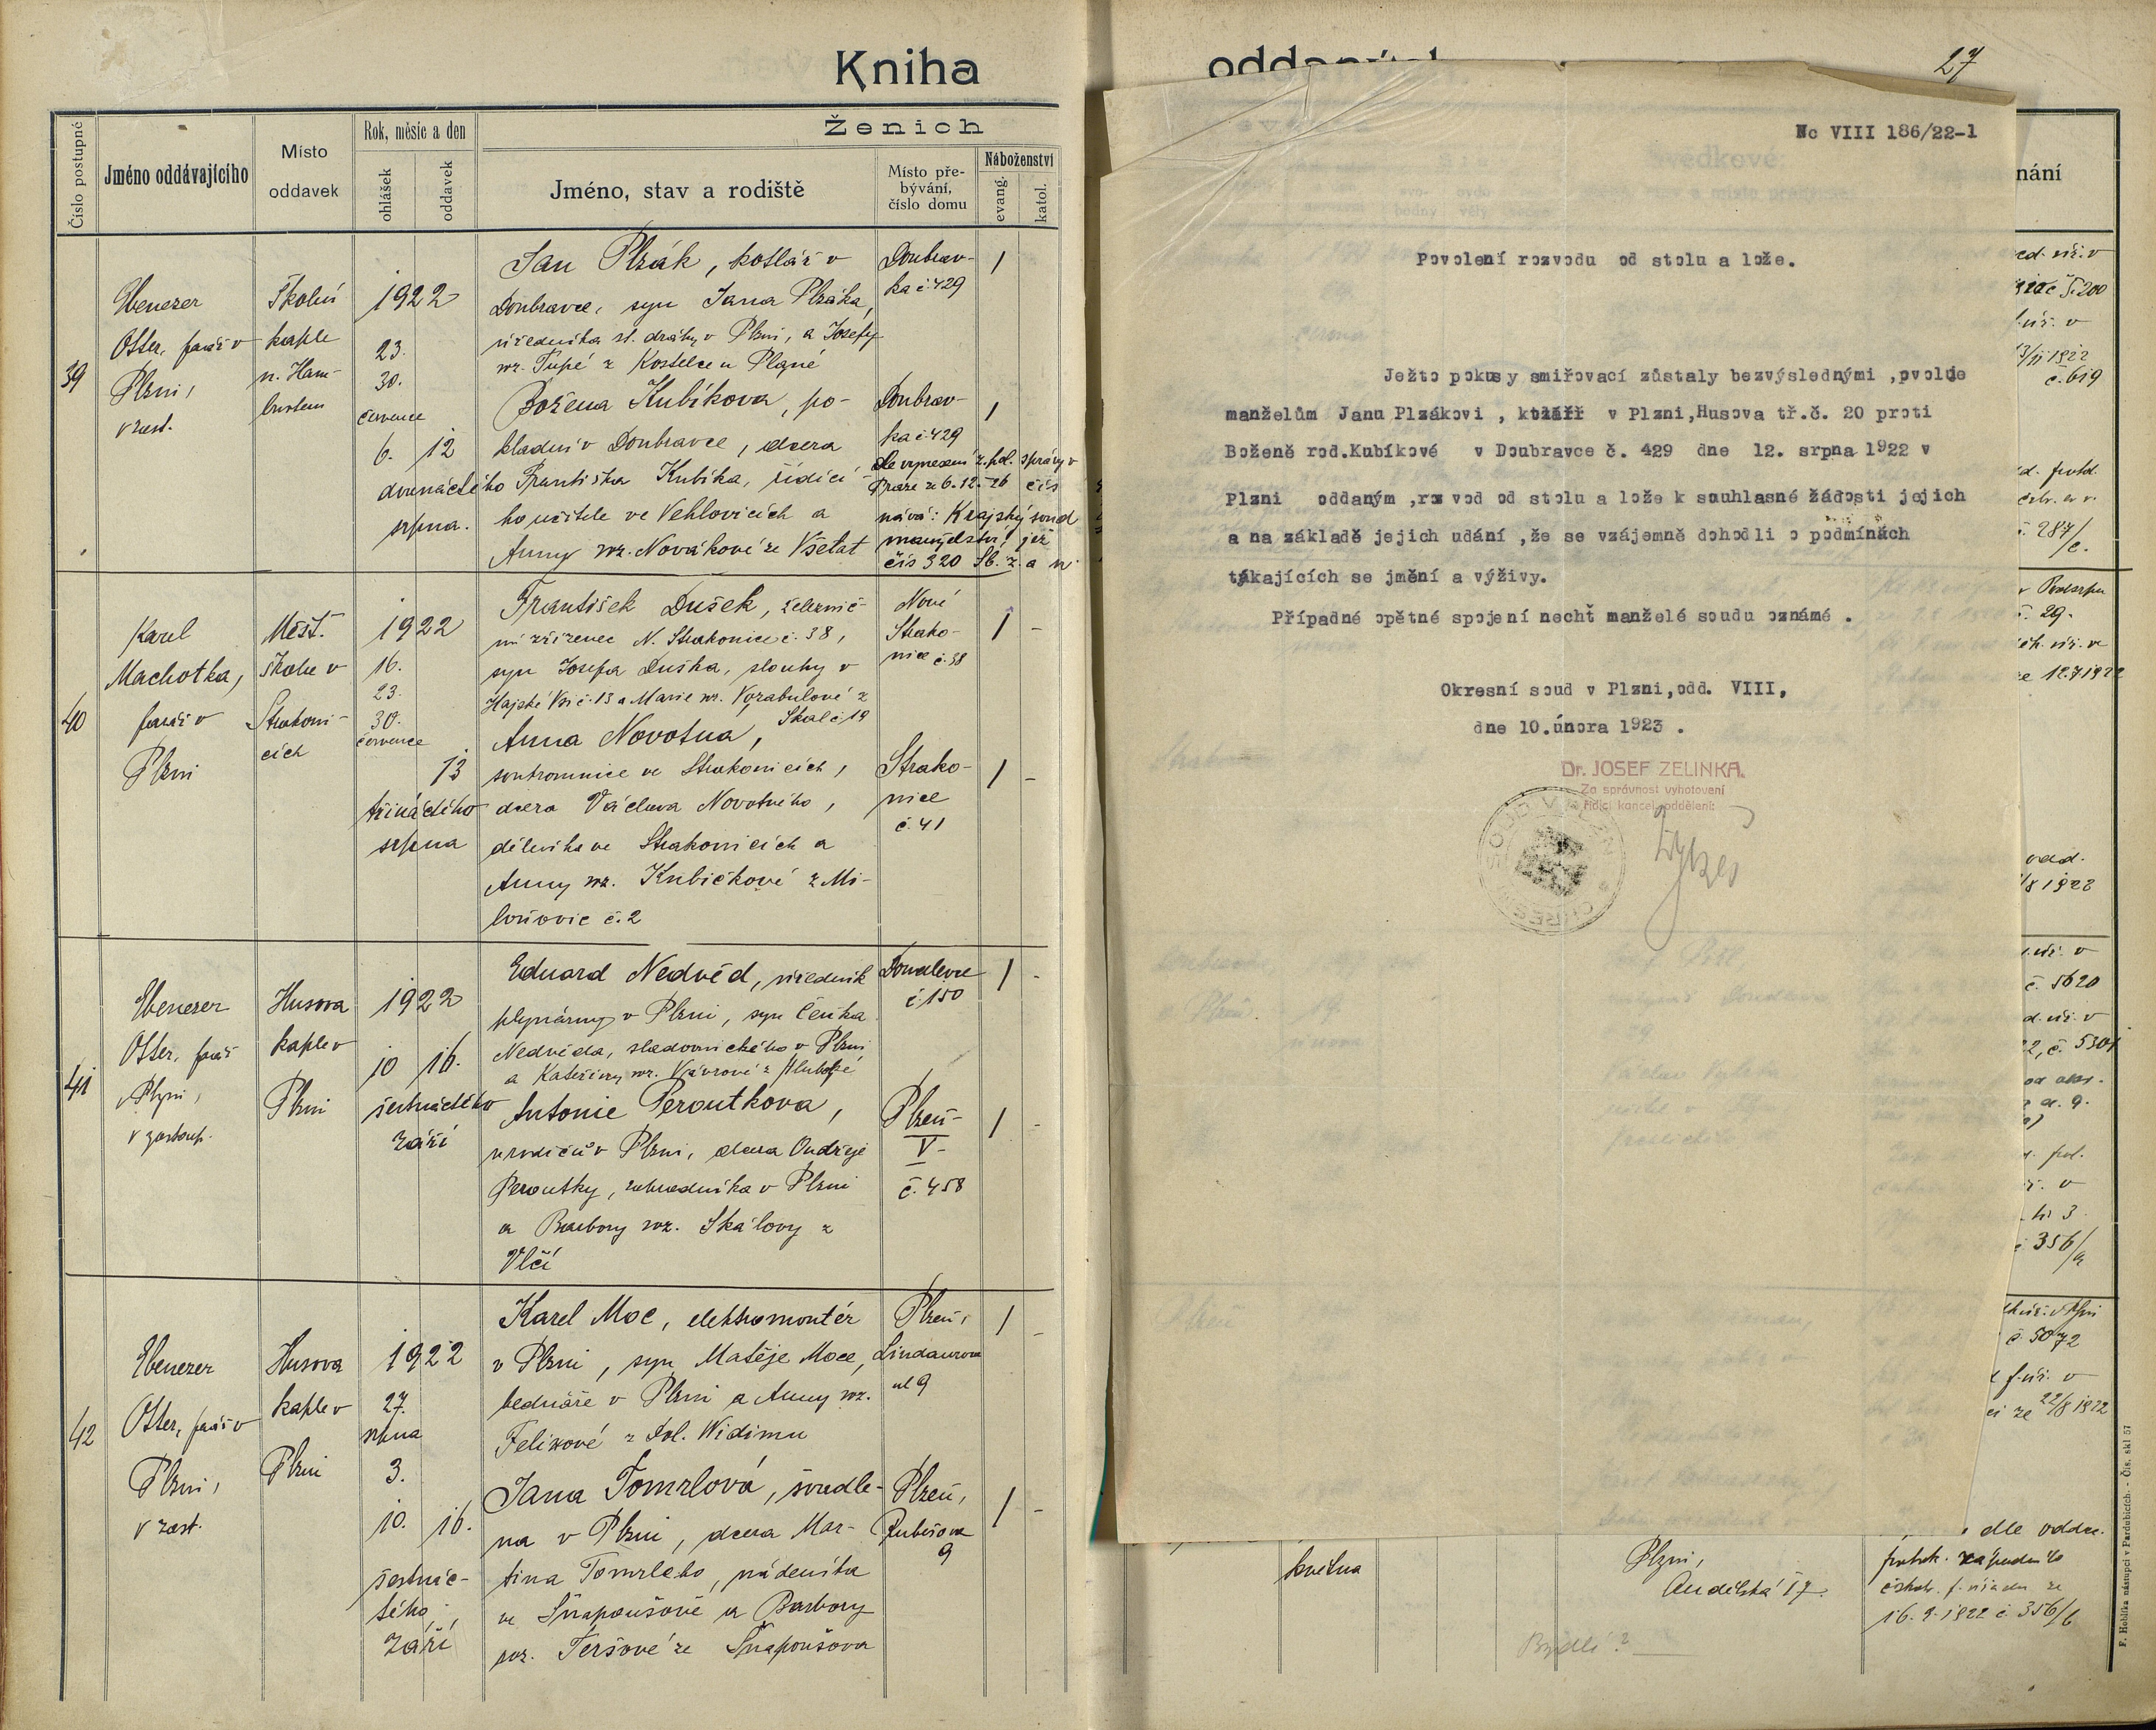 Kniha
Číslo postupné
Jméno oddávajícího
Místo
oddavek
Rok, měsíc a den
ohlášek
oddavek
Ženich
Jméno, stav a rodiště
Místo pře-
bývání,
číslo domu
Náboženství
evang.
katol.
39
Ebenezer
Otter, farář v
Plzni,
v zast.
Školní
kaple
n. Ham-
burkem
1922
23.
30.
července
6. 12
dvanáctého
srpna.
Jan Plzák, kotlář v
Doubravce, syn Jana Plzáka,
úředníka st. dráhy v Plzni, a Josefy
roz. Tupé z Kostelce u Plané
Doubrav-
ka č. 429
1
Božena Kubíkova, po-
kladní v Doubravce, dcera
Františka Kubíka, řídící-
ho učitele ve Vehlovicích a
Anny roz. Novákové ze Všetat
Doubrav-
ka č. 429
1
dle vynesení z. pol. správy v
Praze ze 6.12.-26 čís
nává: Krajský soud
manželství, jež
čís 320 Sb. z. a n
40
Karel
Machotka,
farář v
Plzni
Měšť.
škola v
Strakoni-
cích
1922
16.
23.
30.
července
13
třináctého
srpna
František Dušek, železnič-
ní zřízenec N. Strakonice č. 38,
syn Josefa Duška, slouhy v
Hajské Vsi č. 13 a Marie roz. Vozabulové z
Skal č. 19
Nové
Strako-
nice č. 38
1 -
Anna Novotna,
soukromnice ve Strakonicích,
dcera Václava Novotného,
dělníka ve Strakonicích a
Anny roz. Kubíčkové z Mi-
loňovic č. 2
Strako-
nice
č. 41
1 -
41
Ebenezer
Otter, farář
v Plzni,
v zastoup.
Husova
kaple v
Plzni
1922
10 16.
šestnáctého
září
Eduard Nedvěd, úředník
plynárny v Plzni, syn Čeňka
Nedvěda, sladovnického v Plzni
a Kateřiny roz. Vávrové z Hluboké
Doudlevce
č. 150
1 -
Antonie Peroutkova,
u rodičů v Plzni, dcera Ondřeje
Peroutky, zahradníka v Plzni
a Barbory roz. Skálovy z
Vlčí
Plzeň-
V-
č. 458
1 -
42
Ebenezer
Otter, farář v
Plzni,
v zast.
Husova
kaple v
Plzni
1922
27.
srpna
3.
10. 16.
šestnác-
tého
září
Karel Moc, elektromontér
v Plzni, syn Matěje Moce,
bednáře v Plzni a Anny roz.
Felixové z Dol. Widimu
Plzeň,
Lindaurova
ul 9
1 -
Jana Tomrlová, švadle-
na v Plzni, dcera Mar-
tina Tomrleho, nádeníka
ve Šnapoušově a Barbory
roz. Teršové ze Šnapoušova
Plzeň,
Rubešova
9
1 -
oddaných
27
Nc VIII 186/22-1
Povolení rozvodu od stolu a lože.
Ježto pokusy smiřovací zůstaly bezvýslednými ,pvoluje
manželům Janu Plzákovi , kotláři v Plzni,Husova tř.č. 20 proti
Boženě rod.Kubíkové v Doubravce č. 429 dne 12. srpna 1922 v
Plzni oddaným ,roz vod od stolu a lože k souhlasné žádosti jejich
a na základě jejich udání ,že se vzájemně dohodli o podmínkách
týkajících se jmění a výživy.
Případné opětné spojení nechť manželé soudu oznámé .
Okresní soud v Plzni,odd. VIII,
dne 10.února 1923 .
Dr. JOSEF ZELINKA.
Za správnost vyhotovení
řídící kancel. oddělení:
nání
č. 200
1922
č. 619
287/
c.
29.
12.7.1922
odd.
1922
č. 5620
č. 5301
hř 3
356/
a
č 5072
ze 22/8 1922
května
Plzni,
Andělská č 7.
dle oddac.
protok. západního
16. 9. 1922 č 356/b
Bydlí?
F. Hoblíka nástupci v Pardubicích. - Čís. skl 57